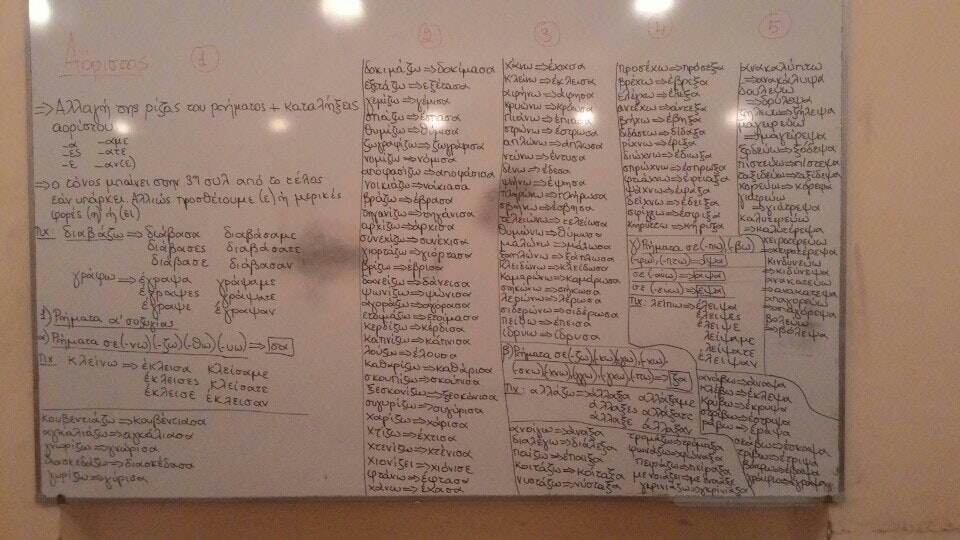 Αόριστος
1
⇒ Αλλαγή της ρίζας του ρήματος + καταλήξεις
αορίστου
-α -αμε
-ες -ατε
-ε -αν(ε)
⇒ ο τόνος μπαίνει στην 3η συλ. από το τέλος
εάν υπάρχει. Αλλιώς προσθέτουμε (ε) ή μερικές
φορές (η) ή (ει)
πχ: διαβάζω ⇒ διάβασα διαβάσαμε
διάβασες διαβάσατε
διάβασε διάβασαν
γράφω ⇒ έγραψα γράψαμε
έγραψες γράψατε
έγραψε έγραψαν
1) Ρήματα α' συζυγίας
α) Ρήματα σε (-νω) (-ζω) (-θω) (-υω) ⇒ σα
πχ: κλείνω ⇒ έκλεισα κλείσαμε
έκλεισες κλείσατε
έκλεισε έκλεισαν
κουβεντιάζω ⇒ κουβέντιασα
αγκαλιάζω ⇒ αγκάλιασα
γνωρίζω ⇒ γνώρισα
διασκεδάζω ⇒ διασκέδασα
γυρίζω ⇒ γύρισα
2
δοκιμάζω ⇒ δοκίμασα
εξετάζω ⇒ εξέτασα
γεμίζω ⇒ γέμισα
σπάζω ⇒ έσπασα
θυμίζω ⇒ θύμισα
ζωγραφίζω ⇒ ζωγράφισα
νομίζω ⇒ νόμισα
αποφασίζω ⇒ αποφάσισα
νοικιάζω ⇒ νοίκιασα
βράζω ⇒ έβρασα
τηγανίζω ⇒ τηγάνισα
αρχίζω ⇒ άρχισα
συνεχίζω ⇒ συνέχισα
γιορτάζω ⇒ γιόρτασα
βρίζω ⇒ έβρισα
δανείζω ⇒ δάνεισα
ψωνίζω ⇒ ψώνισα
αγοράζω ⇒ αγόρασα
ετοιμάζω ⇒ ετοίμασα
κερδίζω ⇒ κέρδισα
καπνίζω ⇒ κάπνισα
λούζω ⇒ έλουσα
καθαρίζω ⇒ καθάρισα
σκουπίζω ⇒ σκούπισα
ξεσκονίζω ⇒ ξεσκόνισα
συγυρίζω ⇒ συγύρισα
χαρίζω ⇒ χάρισα
χτίζω ⇒ έχτισα
χτενίζω ⇒ χτένισα
χιονίζει ⇒ χιόνισε
φτάνω ⇒ έφτασα
χάνω ⇒ έχασα
3
χύνω ⇒ έχυσα
κλείνω ⇒ έκλεισα
αφήνω ⇒ άφησα
κρυώνω ⇒ κρύωσα
πιάνω ⇒ έπιασα
στρώνω ⇒ έστρωσα
απλώνω ⇒ άπλωσα
ντύνω ⇒ έντυσα
δένω ⇒ έδεσα
ψήνω ⇒ έψησα
πληρώνω ⇒ πλήρωσα
σβήνω ⇒ έσβησα
τελειώνω ⇒ τελείωσα
θυμώνω ⇒ θύμωσα
μαλώνω ⇒ μάλωσα
ξαπλώνω ⇒ ξάπλωσα
κλειδώνω ⇒ κλείδωσα
καμαρώνω ⇒ καμάρωσα
σηκώνω ⇒ σήκωσα
λερώνω ⇒ λέρωσα
σιδερώνω ⇒ σιδέρωσα
πείθω ⇒ έπεισα
ιδρύω ⇒ ίδρυσα
β) Ρήματα σε (-ζω), (-κω), (-γω), (-χω),
(-σκω) (-χνω), (-γγω), (-γχω), (-ττω) ⇒ ξα
πχ: αλλάζω ⇒ άλλαξα αλλάξαμε
άλλαξες αλλάξατε
άλλαξε άλλαξαν
ανοίγω ⇒ άνοιξα
διαλέγω ⇒ διάλεξα
παίζω ⇒ έπαιξα
κοιτάζω ⇒ κοίταξα
νυστάζω ⇒ νύσταξα
τρομάζω ⇒ τρόμαξα
φωνάζω ⇒ φώναξα
πειράζω ⇒ πείραξα
μοιάζω ⇒ έμοιαξα
γκρινιάζω ⇒ γκρίνιαξα
4
προσέχω ⇒ πρόσεξα
βρέχω ⇒ έβρεξα
ελέγχω ⇒ έλεξα
αντέχω ⇒ άντεξα
βήχω ⇒ έβηξα
διδάσκω ⇒ δίδαξα
ρίχνω ⇒ έριξα
διώχνω ⇒ έδιωξα
σπρώχνω ⇒ έσπρωξα
φτιάχνω ⇒ έφτιαξα
ψάχνω ⇒ έψαξα
δείχνω ⇒ έδειξα
σφίγγω ⇒ έσφιξα
κηρύττω ⇒ κήρυξα
γ) Ρήματα σε (-πω), (-βω)
(-φω), (-πτω) ⇒ ψα
σε (-αυω) ⇒ αψα
σε (-ευω) ⇒ εψα
πχ: λείπω ⇒ έλειψα
έλειψες
έλειψε
λείψαμε
λείψατε
έλειψαν
ανάβω ⇒ άναψα
κλέβω ⇒ έκλεψα
κρύβω ⇒ έκρυψα
στρίβω ⇒ έστριψα
ράβω ⇒ έραψα
σκάβω ⇒ έσκαψα
τρίβω ⇒ έτριψα
βάφω ⇒ έβαψα
γράφω ⇒ έγραψα
5
ανακαλύπτω
⇒ ανακάλυψα
δουλεύω
⇒ δούλεψα
ζηλεύω ⇒ ζήλεψα
μαγειρεύω
⇒ μαγείρεψα
ξοδεύω ⇒ ξόδεψα
πιστεύω ⇒ πίστεψα
ταξιδεύω ⇒ ταξίδεψα
χορεύω ⇒ χόρεψα
γιατρεύω
⇒ γιάτρεψα
καλυτερεύω
⇒ καλυτέρεψα
χειροτερεύω
⇒ χειροτέρεψα
κινδυνεύω
⇒ κινδύνεψα
ανακατεύω
⇒ ανακάτεψα
απαγορεύω
⇒ απαγόρεψα
βολεύω
⇒ βόλεψα